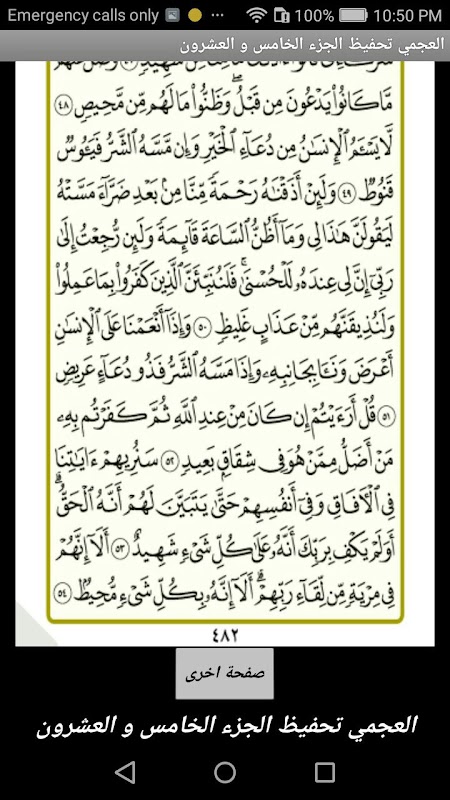 Emergency calls only ... 100% 10:50 PM
العجمي تحفيظ الجزء الخامس و العشرون
مَّا كَانُوا۟ يَدْعُونَ مِن قَبْلُ ۖ وَظَنُّوا۟ مَا لَهُم مِّن مَّحِيصٍ ٤٨
لَّا يَسْـَٔمُ ٱلْإِنسَـٰنُ مِن دُعَآءِ ٱلْخَيْرِ وَإِن مَّسَّهُ ٱلشَّرُّ فَيَـُٔوسٌ
قَنُوطٌ ٤٩ وَلَئِنْ أَذَقْنَـٰهُ رَحْمَةً مِّنَّا مِنۢ بَعْدِ ضَرَّآءَ مَسَّتْهُ
لَيَقُولَنَّ هَـٰذَا لِى وَمَآ أَظُنُّ ٱلسَّاعَةَ قَآئِمَةً وَلَئِن رُّجِعْتُ إِلَىٰ
رَبِّىٓ إِنَّ لِى عِندَهُۥ لَلْحُسْنَىٰ ۚ فَلَنُنَبِّئَنَّ ٱلَّذِينَ كَفَرُوا۟ بِمَا عَمِلُوا۟
وَلَنُذِيقَنَّهُم مِّنْ عَذَابٍ غَلِيظٍ ٥٠ وَإِذَآ أَنْعَمْنَا عَلَى ٱلْإِنسَـٰنِ
أَعْرَضَ وَنَـَٔا بِجَانِبِهِۦ وَإِذَا مَسَّهُ ٱلشَّرُّ فَذُو دُعَآءٍ عَرِيضٍ
٥١ قُلْ أَرَءَيْتُمْ إِن كَانَ مِنْ عِندِ ٱللَّهِ ثُمَّ كَفَرْتُم بِهِۦ
مَنْ أَضَلُّ مِمَّنْ هُوَ فِى شِقَاقٍۭ بَعِيدٍ ٥٢ سَنُرِيهِمْ ءَايَـٰتِنَا
فِى ٱلْـَٔافَاقِ وَفِىٓ أَنفُسِهِمْ حَتَّىٰ يَتَبَيَّنَ لَهُمْ أَنَّهُ ٱلْحَقُّ ۗ
أَوَلَمْ يَكْفِ بِرَبِّكَ أَنَّهُۥ عَلَىٰ كُلِّ شَىْءٍ شَهِيدٌ ٥٣ أَلَآ إِنَّهُمْ
فِى مِرْيَةٍ مِّن لِّقَآءِ رَبِّهِمْ ۗ أَلَآ إِنَّهُۥ بِكُلِّ شَىْءٍ مُّحِيطٌۢ ٥٤
٤٨٢
صفحة اخرى
العجمي تحفيظ الجزء الخامس و العشرون